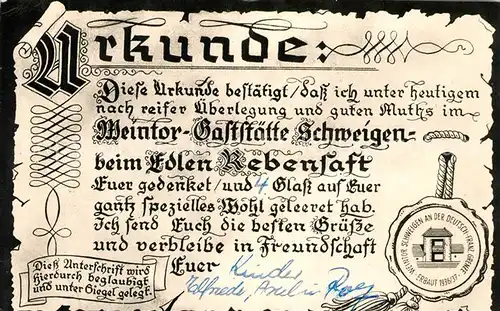 Urkunde:
Diese Urkunde bestätigt/daß ich unter heutigem
nach reifer Überlegung und guten Muths im
Weintor-Gaststätte Schweigen-
beim Edlen Rebensaft
Euer gedenket/und 4 Glaß auf Euer
gantz spezielles Wohl geleeret hab.
Ich send Euch die besten Grüße
und verbleibe in Freundschaft
Euer
Kinder
Elfriede, Axel u. Rolf
Dieß Unterschrift wird
hierdurch beglaubigt
und unter Siegel gelegt.
WEINTOR SCHWEIGEN AN DER DEUTSCH-FRANZ. GRENZE
ERBAUT 1936/37